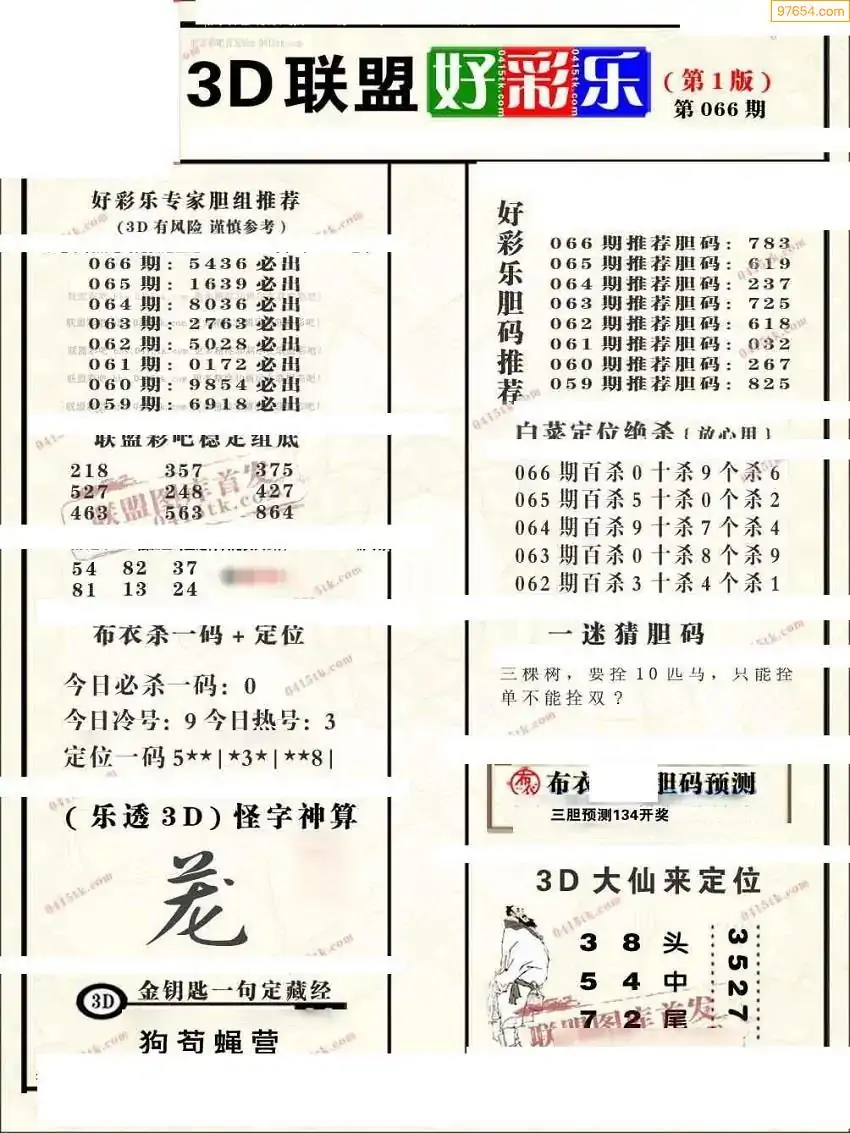 97654.com
3D联盟好彩乐(第1版)
第066期
好彩乐专家胆组推荐
(3D有风险 谨慎参考)
066期: 5436必出
065期: 1639必出
064期: 8036必出
063期: 2763必出
062期: 5028必出
061期: 0172必出
060期: 9854必出
059期: 6918必出
联盟彩吧稳定组底
218 357 375
527 248 427
463 563 864
联盟图库首发
0415tk.com
54 82 37
81 13 24
布衣杀一码+定位
今日必杀一码: 0
今日冷号: 9 今日热号: 3
定位一码5**|*3*|**8|
(乐透3D)怪字神算
茏
3D 金钥匙一句定藏经
狗苟蝇营
好彩乐胆码推荐
066期推荐胆码: 783
065期推荐胆码: 619
064期推荐胆码: 237
063期推荐胆码: 725
062期推荐胆码: 618
061期推荐胆码: 032
060期推荐胆码: 267
059期推荐胆码: 825
白菜定位绝杀{放心用}
066期百杀0十杀9个杀6
065期百杀5十杀0个杀2
064期百杀9十杀7个杀4
063期百杀0十杀8个杀9
062期百杀3十杀4个杀1
一迷猜胆码
三棵树，要拴10匹马，只能拴
单不能拴双？
布衣 胆码预测
三胆预测134开奖
3D大仙来定位
3 8 头
5 4 中
7 2 尾
3527
联盟图库首发